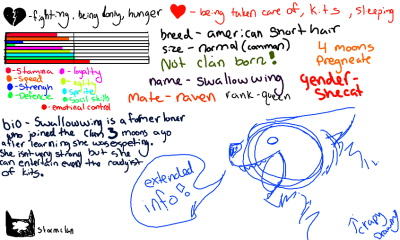 -fighting, being lonly, hunger
-being taken care of, kits, sleeping
breed- american short hair
size- normal (common)
Not clan born!
4 moons
Pregneate
name- swallowwing
gender-
shecat
mate- raven
rank-queen
-Stamina
-Speed
-Strength
-Defence
-loyalty
-sprite
-social skills
-emotional control
bio- Swallowwing is a former loner
who joined the Clan 3 moons ago
after learning she was expeting.
She isnt very strong but she
can entertain even the rowdyist
of kits.
extended
info!
stormclan
crapy
Drawing